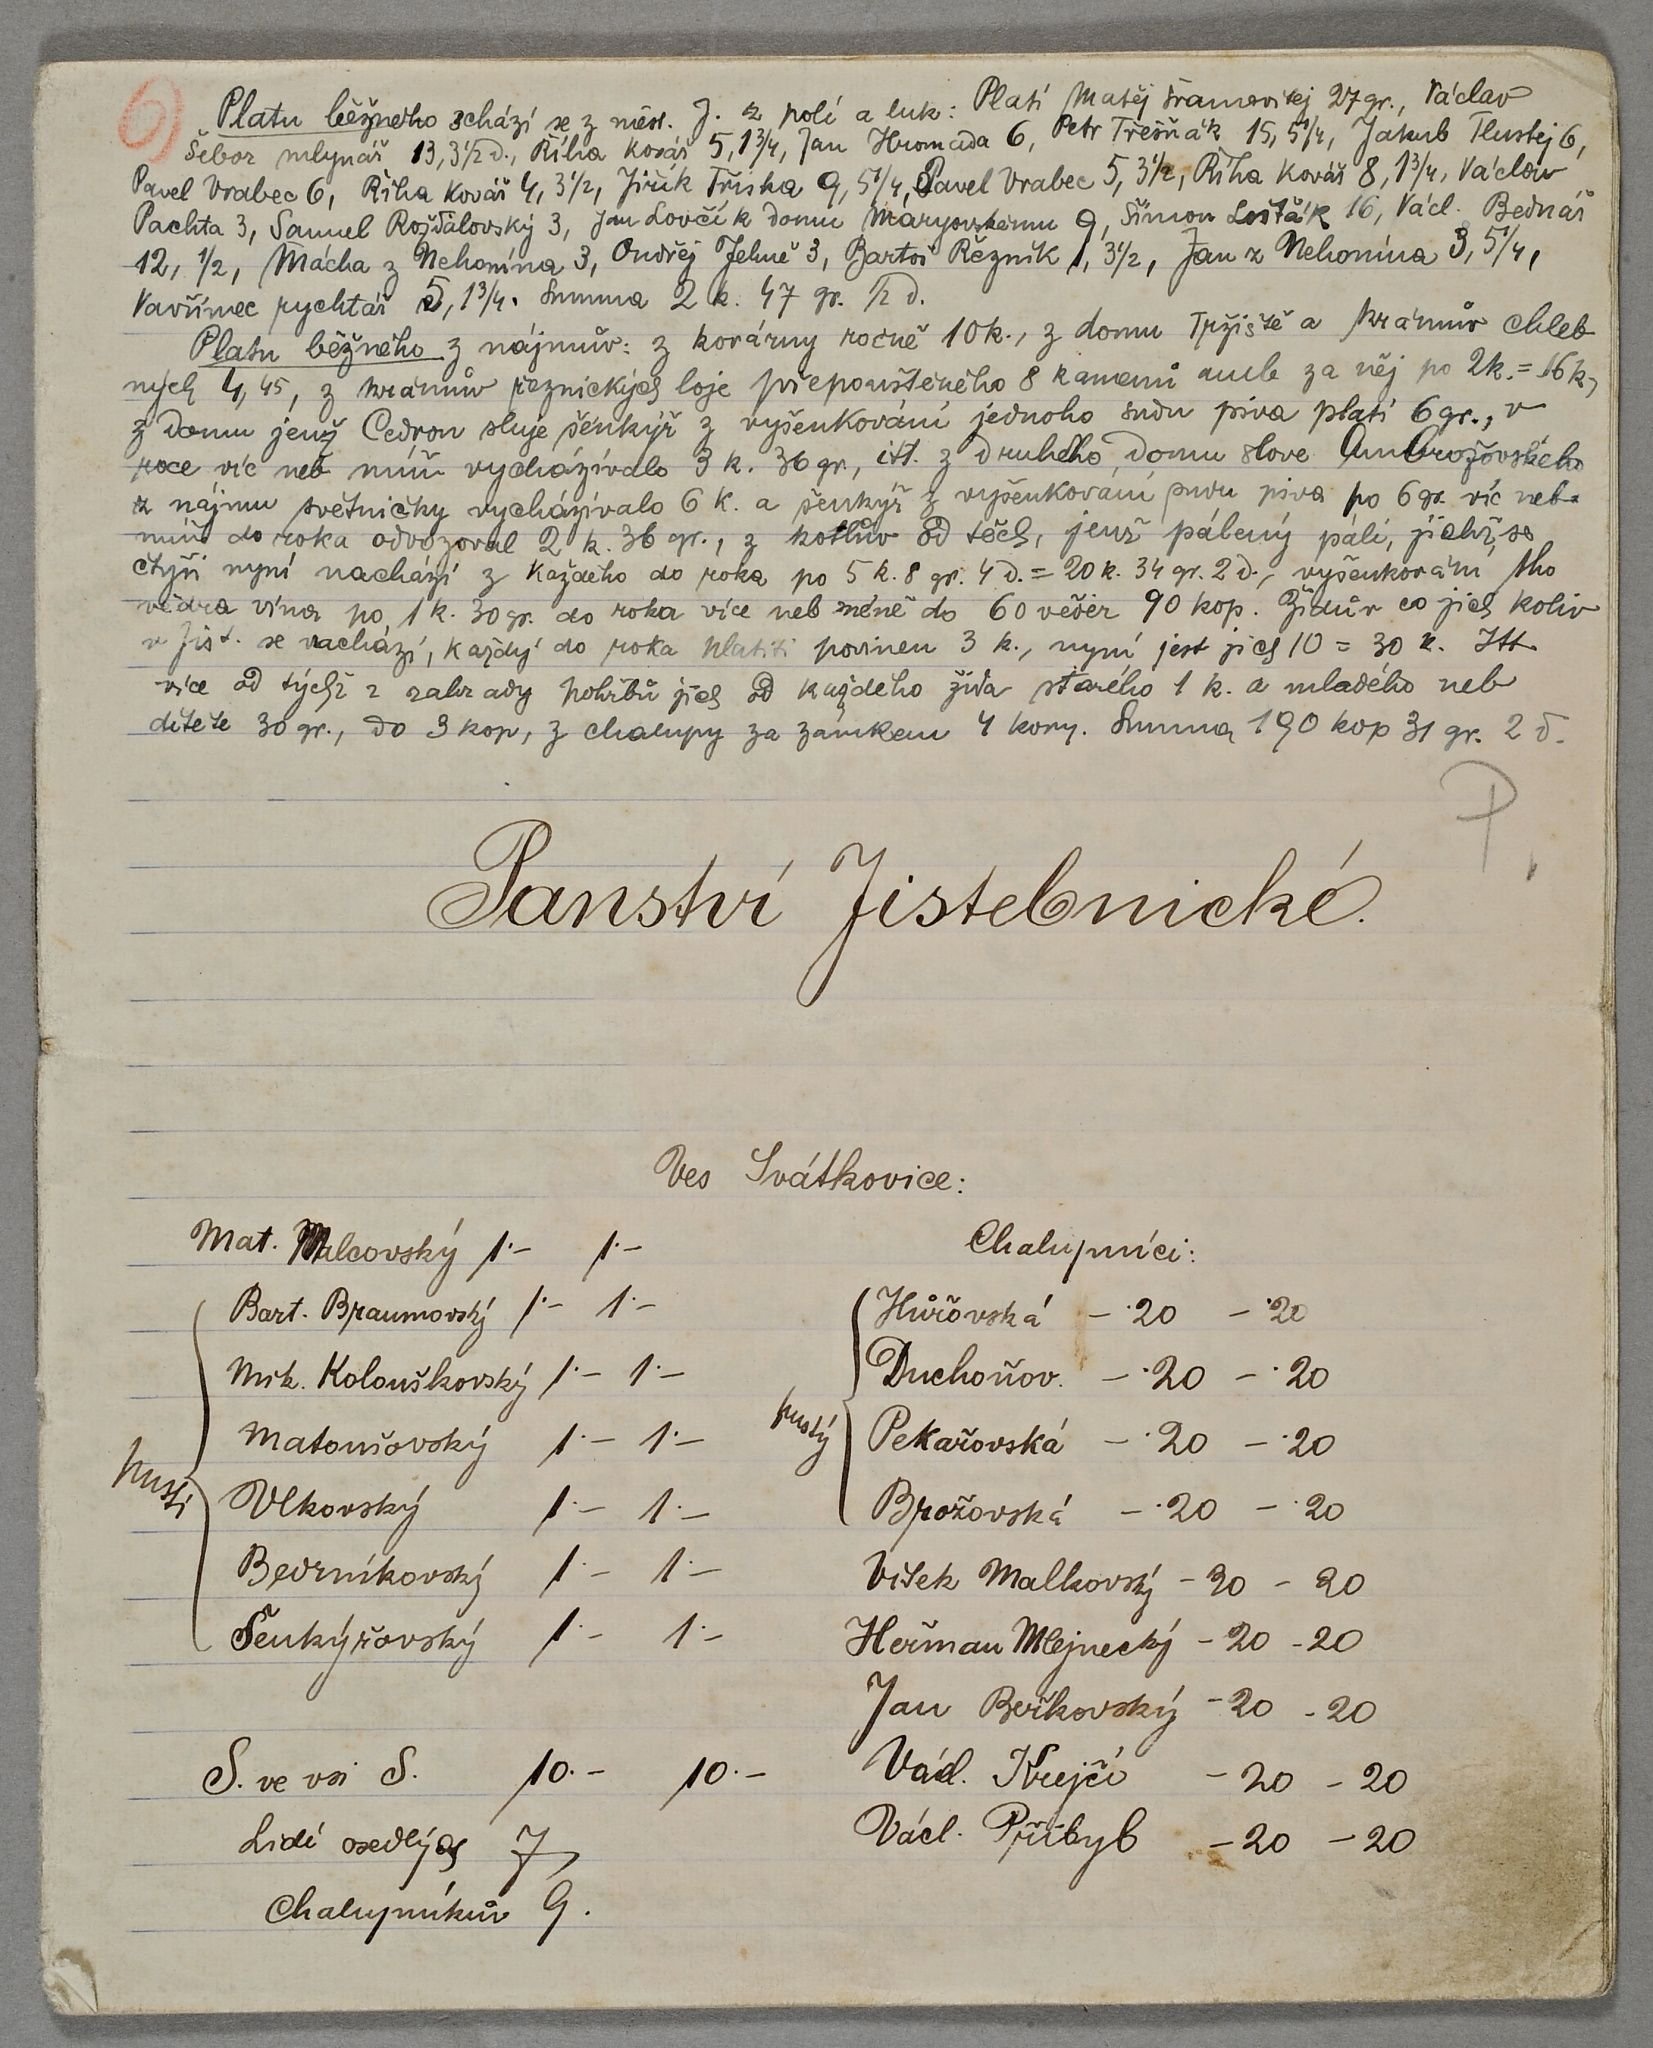 6)
Platu běžného schází se z měst. J. z polí a luk: Platí Matěj 27 gr., Václav
Šebor mlynář 13, 3 1/2 d., Říha Kovář 5, 1 3/4, Jan Hromada 6, Petr Třešňák 15, 5 1/4, Jakub Tlustej 6,
Pavel Vrabec 6, Říha Kovář 4, 3 1/2, Jiřík Tříska 9, 5 1/4, Pavel Vrabec 5, 3 1/2, Říha Kovář 8, 1 3/4, Václav
Pachta 3, Samuel Rožďalovský 3, Jan Lovčí k domu Maryovskému 9, Šimon Lošťák 16, Václ. Bednář
12, 1/2, Mácha z Nehonína 3, Ondřej Jehně 3, Bartoš Řezník 1, 3 1/2, Jan z Nehonína 3, 5 1/4,
Vavřinec rychtář 5, 1 3/4. Summa 2 k. 47 gr. 1/2 d.
Platu běžného z nájmův: z kovárny ročně 10 k., z domu Tržiště a krámův chleb
ných 4, 45, z krámův řeznických loje přepouštěného 8 kamenů aneb za něj po 2 k. = 16 k.,
z domu jenž Cedron sluje šenkýř z vyšenkování jednoho sudu piva platí 6 gr., v
roce víc neb míň vycházívalo 3 k. 36 gr., itt. z druhého domu slove Ambrožovského
z nájmu světničky vycházívalo 6 k. a šenkýř z vyšenkování sudu piva po 6 gr. víc neb
míň do roka odvozoval 2 k. 36 gr., z kotlův od těch, jenž pálený pálí, jichž se
čtyři nyní nachází z každého do roka po 5 k. 8 gr. 4 d. = 20 k. 34 gr. 2 d., vyšenkování 1ho
vědra vína po 1 k. 30 gr. do roka více neb méně do 60 věder 90 kop. Židův co jich koliv
v Jist. se nachází, každý do roka platiti povinen 3 k., nyní jest jich 10 = 30 k. Itt.
více od týchž z zahrady pohřbů jich od každého žida starého 1 k. a mladého neb
dítěte 30 gr., do 3 kop, z chalupy za zámkem 4 kopy. Summa 190 kop 31 gr. 2 d.
P.
Panství Jistebnické.
Ves Svátkovice:
Mat. Malcovský 1.– 1.–
Bart. Braumovský 1.– 1.–
Mik. Kolouškovský 1.– 1.–
Matoušovský 1.– 1.–
pustí
Vlkovský 1.– 1.–
Bedrníkovský 1.– 1.–
Šenkýřovský 1.– 1.–
S. ve vsi S. 10.– 10.–
Lidí osedlých 7
Chalupníkův 9.
Chalupníci:
Hůřovská –.20 –.20
Duchoňov. –.20 –.20
pustý
Pekařovská –.20 –.20
Brožovská –.20 –.20
Vítek Malkovský –20 –20
Heřman Mlejnecký –20 –20
Jan Beřkovský –20 –20
Václ. Krejčí –20 –20
Václ. Přibyl –20 –20